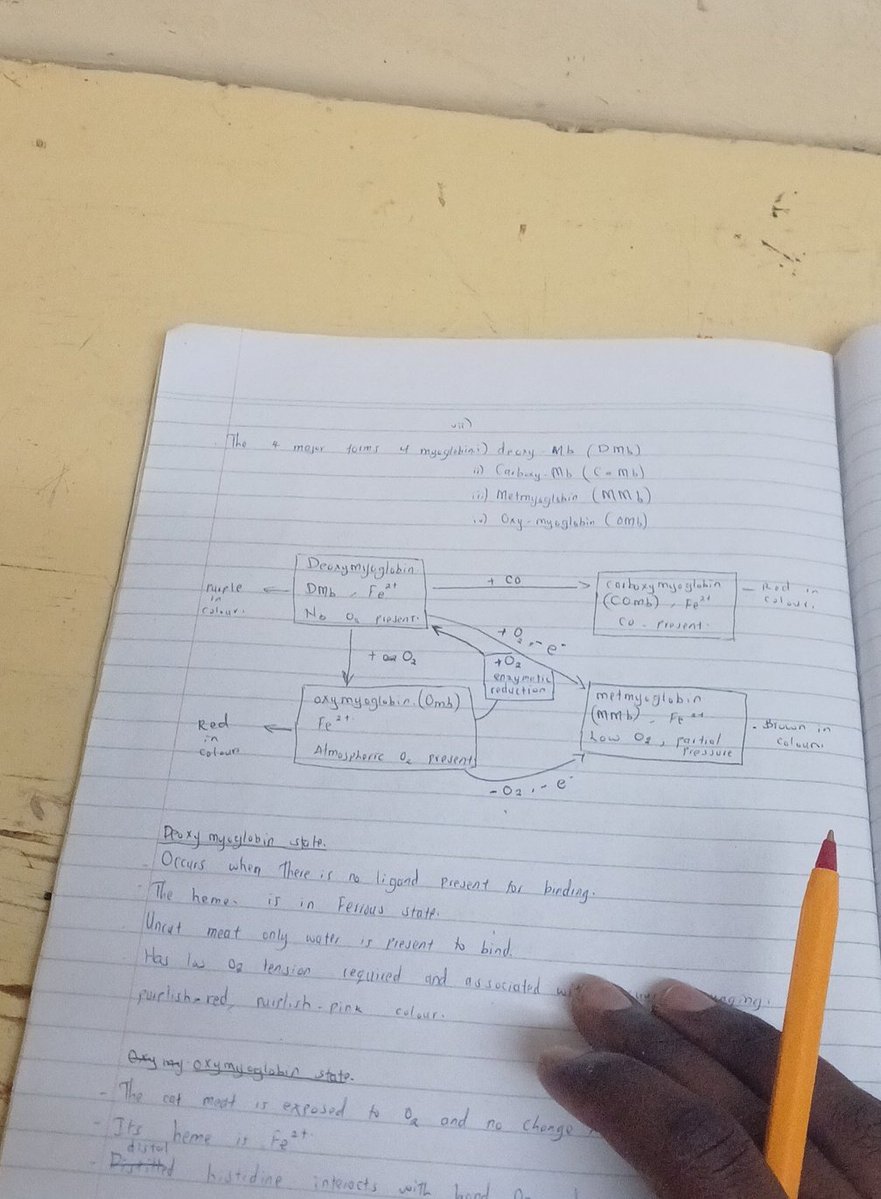 vii)
The 4 major forms of myoglobin:i) deoxy Mb (DMb)
ii) Carboxy-Mb (C-mb)
iii) Metmyoglobin (MMb)
iv) Oxy-myoglobin (Omb)
Deoxymyoglobin
DMb, Fe²⁺
No O₂ present.
Purple
in
colour.
+ CO
Carboxymyoglobin
(COmb), Fe²⁺
CO present.
- Red in
colour.
+ O₂, -e⁻
+ O₂
+O₂
enzymatic
reduction
oxymyoglobin.(Omb)
Fe²⁺
Atmospheric O₂ present
Red
in
colour
metmyoglobin
(MMb) - Fe
Low O₂, partial
pressure
- Brown in
colour.
-O₂, -e⁻
Deoxy myoglobin state.
- Occurs when there is no ligand present for binding.
- The heme is in Ferrous state.
Uncut meat only water is present to bind.
Has low O₂ tension required and associated
purplish-red, purlish-pink colour.
oxymyoglobin state.
- The cut meat is exposed to O₂ and no change
- Its heme is Fe²⁺
distal
- histidine interacts with